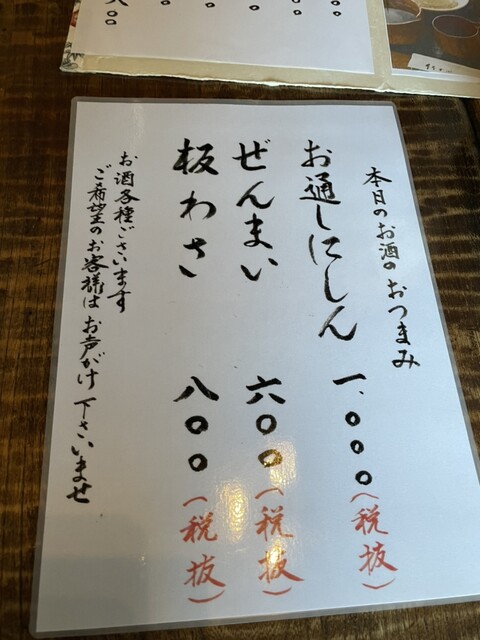 本日のお酒のおつまみ
お通しにしん 一、〇〇〇(税抜)
ぜんまい 六〇〇(税抜)
板わさ 八〇〇(税抜)
お酒各種ございます
ご希望のお客様はお声がけ下さいませ